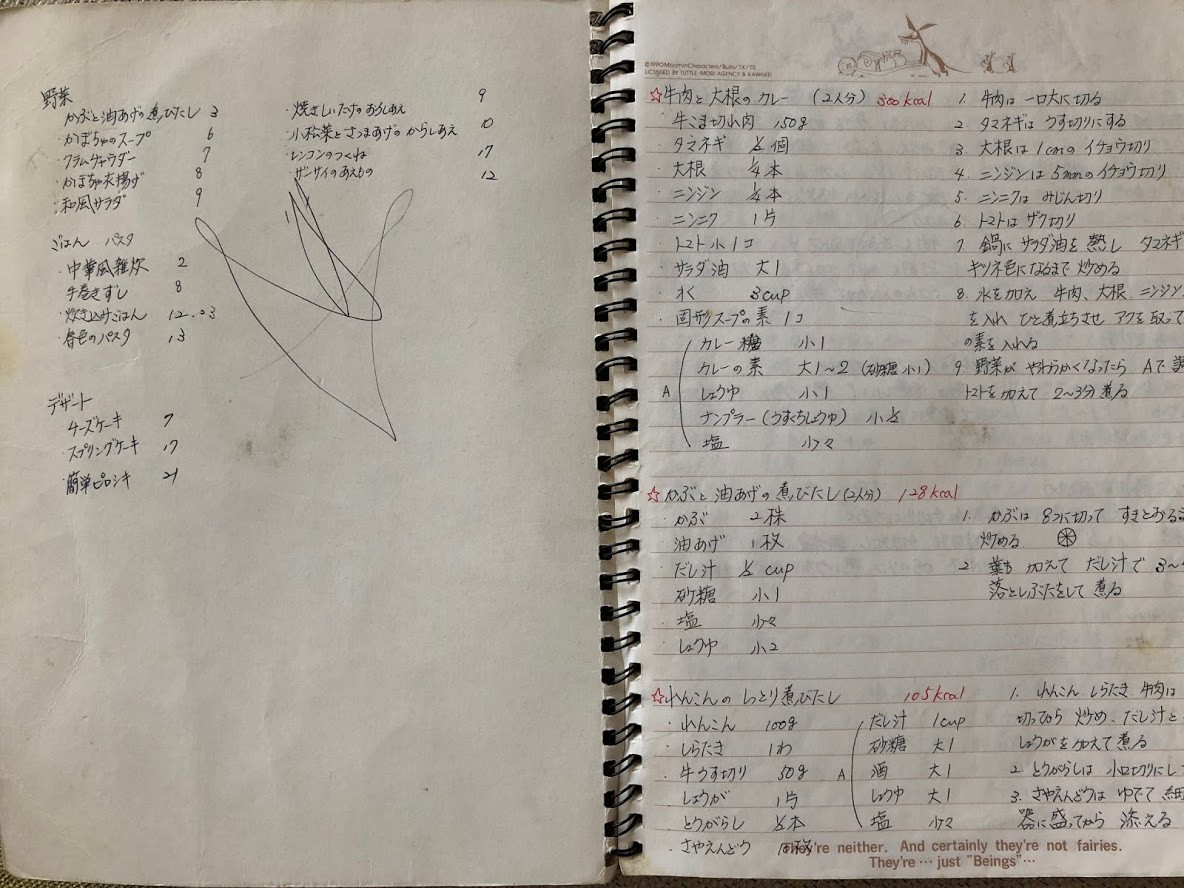 野菜
かぶと油あげの煮びたし 3
・かぼちゃのスープ 6
・クラムチャウダー 7
・かぼちゃ衣揚げ 8
・和風サラダ 9
・焼きしいたけのおろしあえ 9
・小松菜とさつまあげのからしあえ 10
・レンコンのつくね 17
・ザーサイのあえもの 12
ごはん パスタ
・中華風雑炊 2
・手巻きずし 8
・炊き込みごはん 12.23
・春色のパスタ 13
デザート
チーズケーキ 7
・スプリングケーキ 17
・簡単ピロシキ 21
©1990MoominCharacters/Bulls/TX/TS
LICENSED BY TUTTLE-MORI AGENCY & KAWAKEI
☆牛肉と大根のカレー (2人分) 300kcal
・牛こま切れ肉 150g
・タマネギ 1/2個
・大根 1/4本
・ニンジン 1/2本
・ニンニク 1片
・トマト小1コ
・サラダ油 大1
・水 3cup
・固形スープの素 1コ
A
カレー粉 小1
カレーの素 大1〜2 (砂糖小1)
しょうゆ 小1
ナンプラー (うすくちしょうゆ) 小1/2
塩 少々
1. 牛肉は一口大に切る
2. タマネギはうす切りにする
3. 大根は1cmのイチョウ切り
4. ニンジンは5mmのイチョウ切り
5. ニンニクはみじん切り
6. トマトはザク切り
7. 鍋にサラダ油を熱し タマネギ
キツネ色になるまで炒める
8. 水を加え 牛肉、大根 ニンジン
を入れ ひと煮立ちさせ アクを取って
の素を入れる
9. 野菜がやわらかくなったら Aで調
トマトを加えて 2〜3分煮る
☆かぶと油あげの煮びたし(2人分) 128kcal
・かぶ 2株
・油あげ 1枚
・だし汁 1/2cup
・砂糖 小1
・塩 少々
・しょうゆ 小2
1. かぶは8つに切って すきとおるま
炒める
2. 葉も加えて だし汁で 3〜
落としぶたをして煮る
☆れんこんのしっとり煮びたし 105kcal
・れんこん 100g
・しらたき 1わ
・牛うす切り 50g
・しょうが 1片
・とうがらし 1/2本
・さやえんどう 10枚
A
だし汁 1cup
砂糖 大1
酒 大1
しょうゆ 大1
塩 少々
1. れんこん しらたき 牛肉は
切ってから 炒め、だし汁と
しょうがを加えて煮る
2. とうがらしは 小口切りにし
3. さやえんどうは ゆでて 細
器に盛ってから 添える
They're neither. And certainly they're not fairies.
They're … just "Beings"…